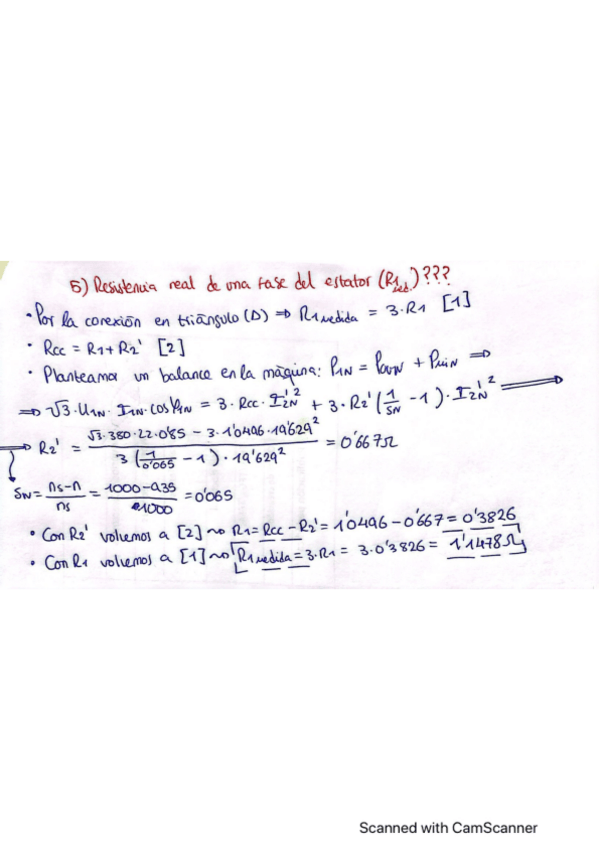 5) Resistencia real de una fase del estator (R1med.)???
• Por la conexión en triángulo (D) ⇒ R1medida = 3·R1 [1]
• Rcc = R1 + R2' [2]
• Planteamos un balance en la máquina: P1N = PCuN + PmiN ⇒
⇒ √3·U1N·I1N·cosφ1N = 3·Rcc·I2N'² + 3·R2'(1/SN − 1)·I2N'² ⇒
⇒ R2' = (√3·380·22·0'85 − 3·1'0496·19'629²) / (3(1/0'065 − 1)·19'629²) = 0'667Ω
SN = (ns−n)/ns = (1000−935)/1000 = 0'065
• Con R2' volvemos a [2] ~> R1 = Rcc − R2' = 1'0496 − 0'667 = 0'3826
• Con R1 volvemos a [1] ~> R1medida = 3·R1 = 3·0'3826 = 1'1478Ω
Scanned with CamScanner